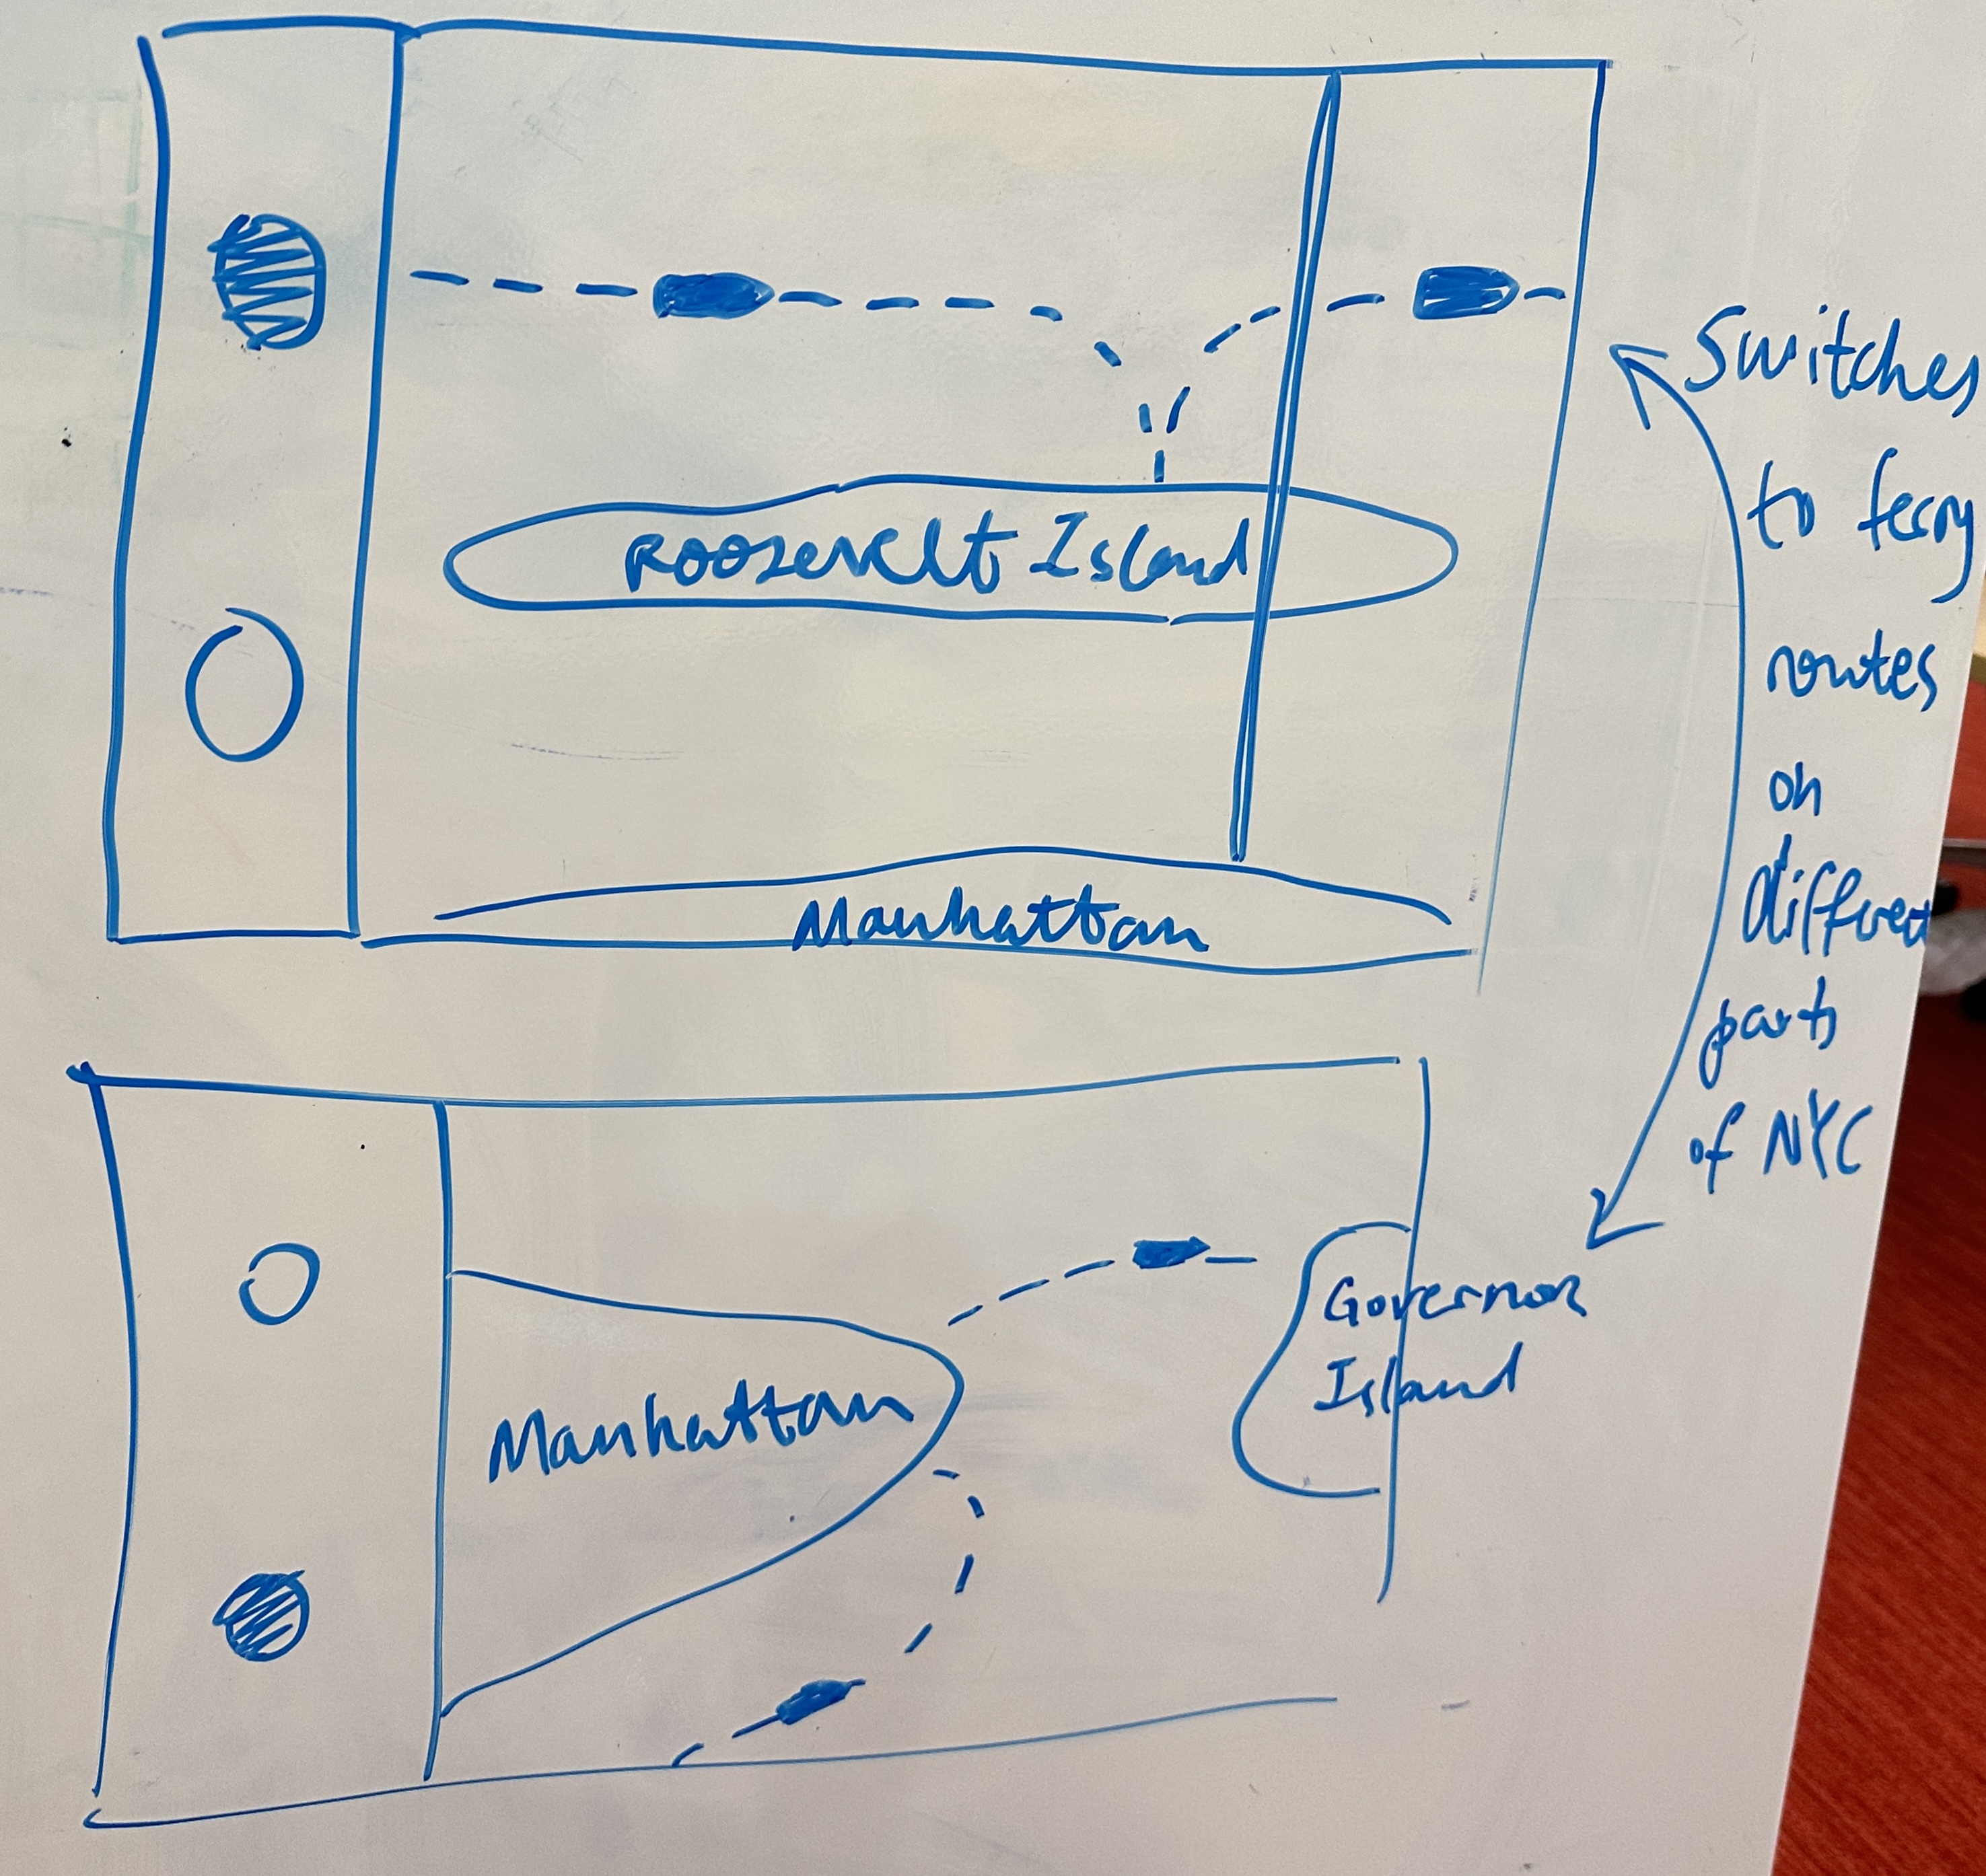 Roosevelt Island
Manhattan
Switches
to ferry
routes
on
different
parts
of NYC
Manhattan
Governor
Island